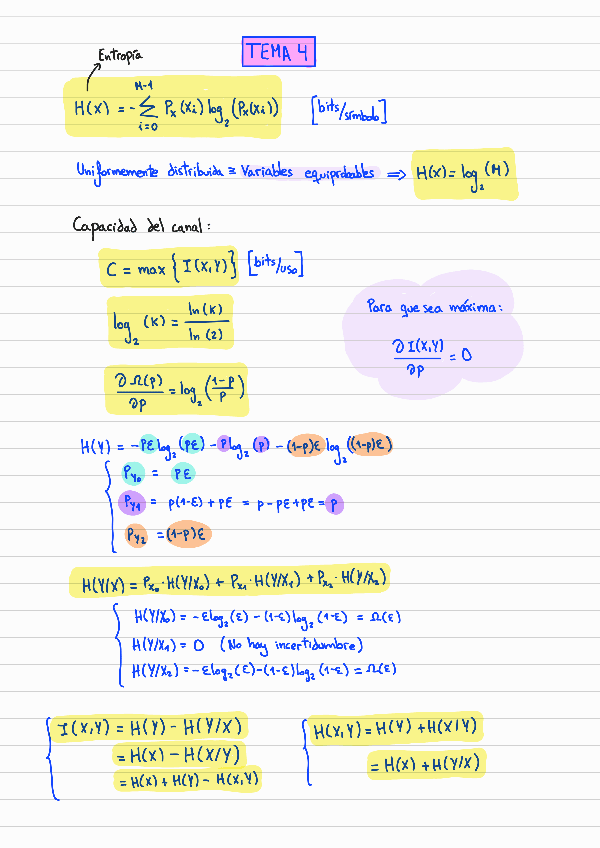 TEMA 4
Entropía
H(X) = -∑_{i=0}^{M-1} P_X(x_i) log_2 (P_X(x_i)) [bits/símbolo]
Uniformemente distribuida ≡ Variables equiprobables ⇒ H(X) = log_2 (M)
Capacidad del canal:
C = max { I(X,Y) } [bits/uso]
log_2 (K) = ln(K) / ln(2)
Para que sea máxima:
∂I(X,Y) / ∂p = 0
∂Ω(p) / ∂p = log_2 ((1-p)/p)
H(Y) = -pε log_2 (pε) - p log_2 (p) - (1-p)ε log_2 ((1-p)ε)
P_{Y0} = pε
P_{Y1} = p(1-ε) + pε = p - pε + pε = p
P_{Y2} = (1-p)ε
H(Y/X) = P_{X0}·H(Y/X_0) + P_{X1}·H(Y/X_1) + P_{X2}·H(Y/X_2)
H(Y/X_0) = -ε log_2 (ε) - (1-ε) log_2 (1-ε) = Ω(ε)
H(Y/X_1) = 0 (No hay incertidumbre)
H(Y/X_2) = -ε log_2 (ε) - (1-ε) log_2 (1-ε) = Ω(ε)
I(X,Y) = H(Y) - H(Y/X)
= H(X) - H(X/Y)
= H(X) + H(Y) - H(X,Y)
H(X,Y) = H(Y) + H(X/Y)
= H(X) + H(Y/X)